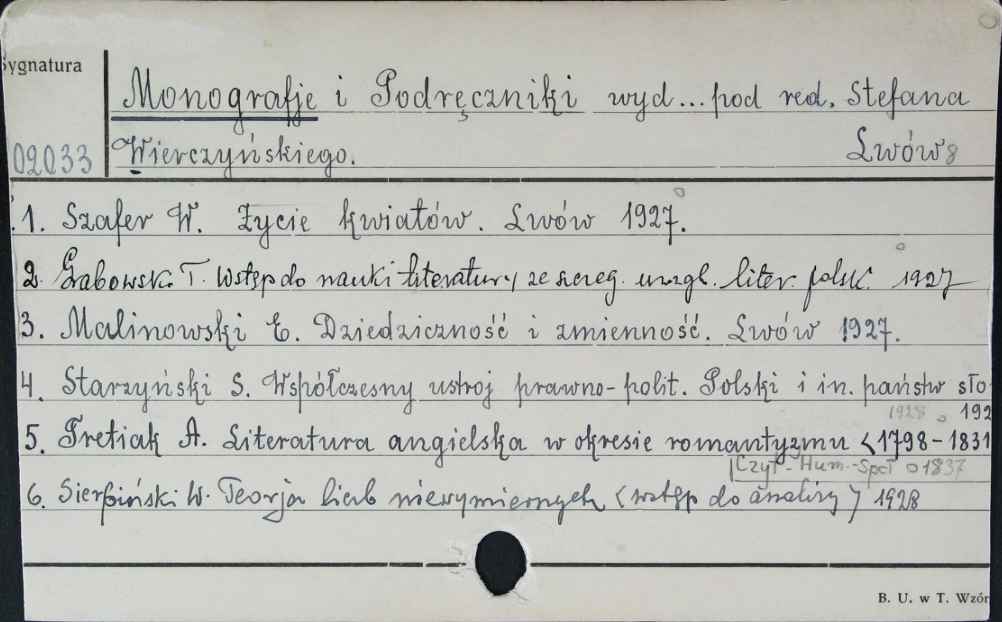 Sygnatura
Monografje i Podręczniki wyd... pod red. Stefana
02033 Wierczyńskiego. Lwów 8
1. Szafer W. Życie kwiatów. Lwów 1927.
2. Grabowski T. Wstęp do nauki literatury ze szczeg. uwzgl. liter. polsk. 1927
3. Malinowski E. Dziedziczność i zmienność. Lwów 1927.
4. Starzyński S. Współczesny ustrój prawno-polit. Polski i in. państw sło
1928 192
5. Tretiak A. Literatura angielska w okresie romantyzmu (1798-1831
Czyt-Hum-Społ 1837
6. Sierpiński W. Teorja liczb niewymiernych (wstęp do analizy) 1928
B. U. w T. Wzór